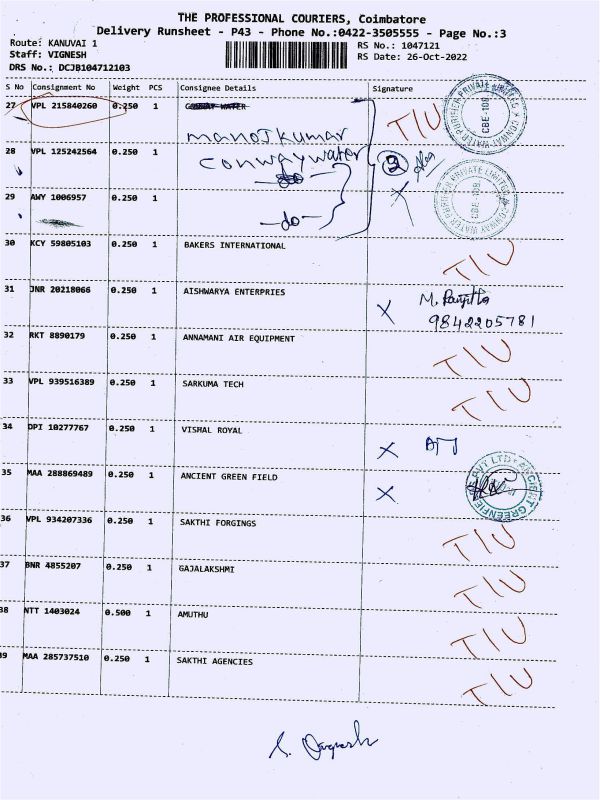 THE PROFESSIONAL COURIERS, Coimbatore
Delivery Runsheet - P43 - Phone No.:0422-3505555 - Page No.:3
Route: KANUVAI 1
Staff: VIGNESH
DRS No.: DCJB104712103
RS No.: 1047121
RS Date: 26-Oct-2022
S No Consignment No Weight PCS Consignee Details Signature
27 VPL 215840260 0.250 1 CONWAY WATER T/U
manojkumar
28 VPL 125242564 0.250 1 Conwaywater 3
-do-
29 AWY 1006957 0.250 1 X
-do-
WATER PURIFIER PRIVATE LIMITED X CONWAY
CBE-108
WATER PURIFIER PRIVATE LIMITED X CONWAY
CBE-108
30 KCY 59805103 0.250 1 BAKERS INTERNATIONAL T/U
31 JNR 20218066 0.250 1 AISHWARYA ENTERPRIES X M.
9842205781
32 RKT 8890179 0.250 1 ANNAMANI AIR EQUIPMENT T/U
33 VPL 939516389 0.250 1 SARKUMA TECH T/U
34 DPI 10277767 0.250 1 VISHAL ROYAL X
35 MAA 288869489 0.250 1 ANCIENT GREEN FIELD X
PVT LTD ANCIENT GREENFIELDS
36 VPL 934207336 0.250 1 SAKTHI FORGINGS T/U
37 BNR 4855207 0.250 1 GAJALAKSHMI T/U
38 NTT 1403024 0.500 1 AMUTHU T/U
39 MAA 285737510 0.250 1 SAKTHI AGENCIES T/U
S. Vignesh